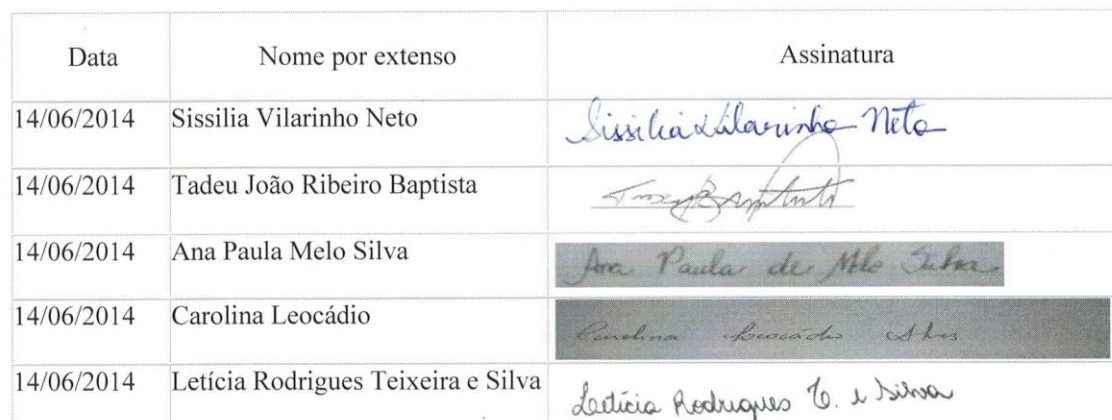 Data Nome por extenso Assinatura
14/06/2014 Sissilia Vilarinho Neto Sissilia Vilarinho Neto
14/06/2014 Tadeu João Ribeiro Baptista
14/06/2014 Ana Paula Melo Silva Ana Paula de Melo Silva
14/06/2014 Carolina Leocádio Carolina Leocádio Alves
14/06/2014 Letícia Rodrigues Teixeira e Silva Letícia Rodrigues T. e Silva